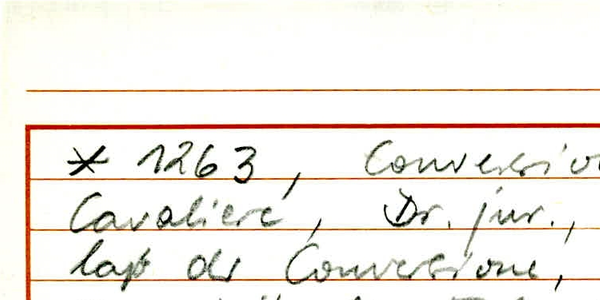 * 1263, Conversio
Cavaliere, Dr. jur.,
laß der Conversione,